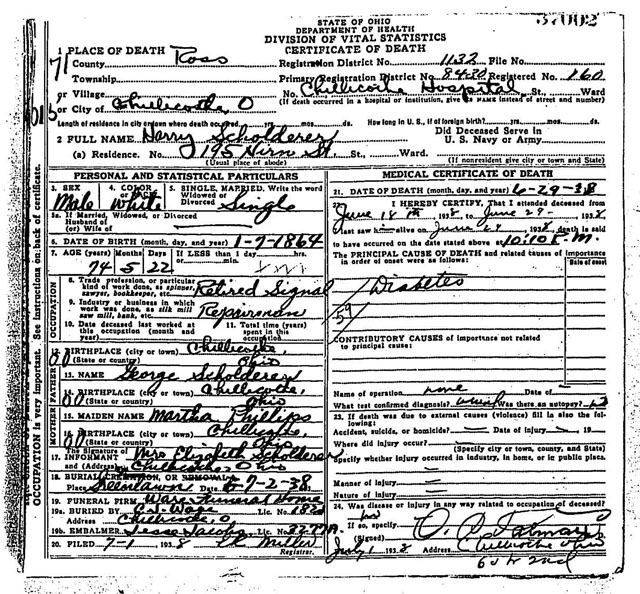 STATE OF OHIO
DEPARTMENT OF HEALTH
DIVISION OF VITAL STATISTICS
CERTIFICATE OF DEATH
37002
1 PLACE OF DEATH
County Ross
Registration District No. 1132 File No.
Township
Primary Registration District No. 8430 Registered No. 160
or Village
No. Chillicothe Hospital St., Ward
or City of Chillicothe, O
(If death occurred in a hospital or institution, give its NAME instead of street and number)
Length of residence in city or town where death occurred yrs. mos. ds.
How long in U. S., if of foreign birth? yrs. mos. ds.
2 FULL NAME Harry Scholderer
Did Deceased Serve in U. S. Navy or Army
(a) Residence. No. St., Ward.
(Usual place of abode)
(If nonresident give city or town and State)
PERSONAL AND STATISTICAL PARTICULARS
3. SEX
Male
4. COLOR or RACE
White
5. SINGLE, MARRIED, Write the word
Widowed or Divorced
Single
5a. If Married, Widowed, or Divorced
Husband of
(or) Wife of
6. DATE OF BIRTH (month, day, and year) 1-7-1864
7. AGE Years Months Days If LESS than 1 day hrs. min.
74 5 22
8. Trade, profession, or particular kind of work done, as spinner, sawyer, bookkeeper, etc. Retired Signal
9. Industry or business in which work was done, as silk mill saw mill, bank, etc. Repairman
10. Date deceased last worked at this occupation (month and year)
11. Total time (years) spent in this occupation
12. BIRTHPLACE (city or town) Chillicothe,
(State or country) Ohio
FATHER
13. NAME George Scholderer
14. BIRTHPLACE (city or town) Chillicothe,
(State or country) Ohio
MOTHER
15. MAIDEN NAME Martha Phillips
16. BIRTHPLACE (city or town) Chillicothe,
(State or country) Ohio
The Signature of
17. INFORMANT Mrs Elizabeth Scholderer
and (Address) Chillicothe, Ohio
18. BURIAL, CREMATION, OR REMOVAL
Place Greenlawn Date 7-2-38
19. FUNERAL FIRM Ware Funeral Home
19a. BURIED BY C. S. Ware Lic. No.
Address Chillicothe, O
19b. EMBALMER Jesse Jacobs Lic. No.
20. FILED 7-1 1938 Miller
Registrar.
MEDICAL CERTIFICATE OF DEATH
21. DATE OF DEATH (month, day, and year) 6-29-38
22. I HEREBY CERTIFY, That I attended deceased from
June 18th, 1938, to June 29, 1938
I last saw him alive on June 29, 1938, death is said
to have occurred on the date stated above at 10:10 P.M.
The PRINCIPAL CAUSE OF DEATH and related causes of importance in order of onset were as follows:
Date of onset
Diabetes
59
CONTRIBUTORY CAUSES of importance not related to principal cause:
Name of operation none Date of
What test confirmed diagnosis? Was there an autopsy? no
23. If death was due to external causes (violence) fill in also the following:
Accident, suicide, or homicide? Date of injury 19
Where did injury occur?
(Specify city or town, county, and State)
Specify whether injury occurred in industry, in home, or in public place.
Manner of injury
Nature of injury
24. Was disease or injury in any way related to occupation of deceased? no
If so, specify
(Signed)
July 1 1938 Address Chillicothe Ohio
OCCUPATION
OCCUPATION is very important. See instructions on back of certificate.